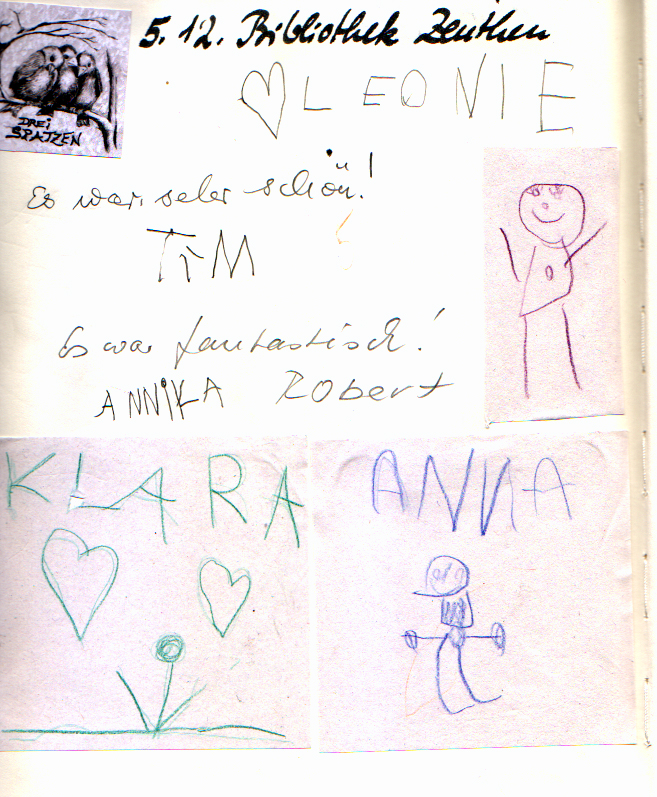 5.12. Bibliothek Zeuthen
DREI
SPATZEN
LEONIE
Es war sehr schön!
TiM
Es war fantastisch!
ANNiKA Robert
KLARA
ANNA